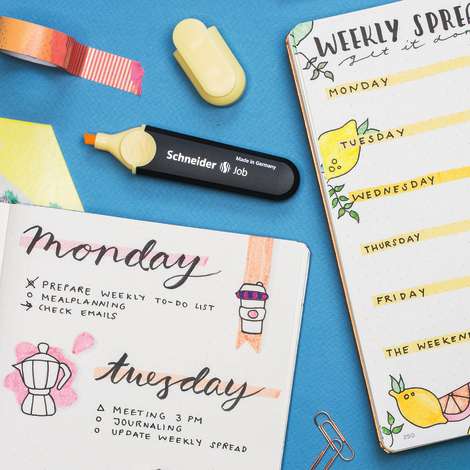 Schneider Job
Made in Germany
WEEKLY SPREA
get it done
MONDAY
TUESDAY
WEDNESDAY
THURSDAY
FRIDAY
THE WEEKEND
250
monday
PREPARE WEEKLY TO-DO LIST
MEALPLANNING
CHECK EMAILS
tuesday
MEETING 3 PM
JOURNALING
UPDATE WEEKLY SPREAD